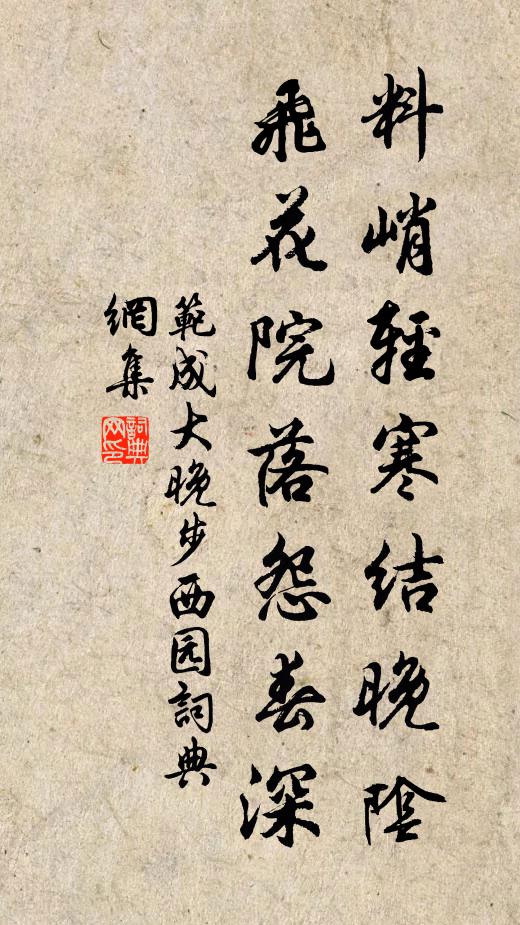 料峭輕寒結晚陰
飛花院落怨春深
範成大晚步西园詞典
網集
詞典
网印